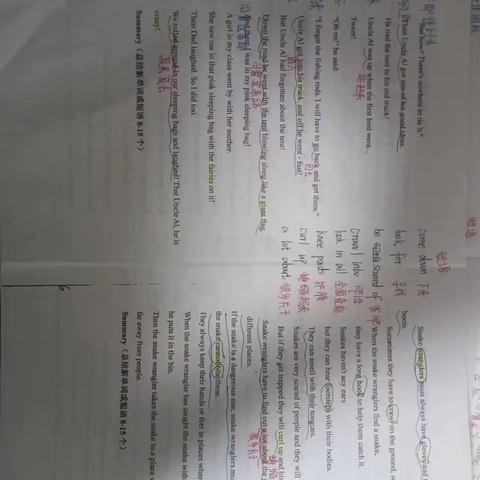 "That's how! There's nowhere to tie it."
Then Uncle Al got one of his good ideas.
He tied the tent to his old truck!
Uncle Al was up when the first bird went...
Tweet!
"Oh no!" he said.
"I forgot the fishing rods. I will have to go back and get them."
Uncle Al got into his truck, and off he went - fast!
But Uncle Al had forgotten about the tent!
Down the road he went with the tent blowing along like a giant flag.
I was in my pink sleeping bag!
A girl in my class went by with her mother.
She saw me in that pink sleeping bag with the fairies on it!
Then Dad laughed. So I did too.
We rolled around in our sleeping bags and laughed! That Uncle Al, he is
crazy!
Summary（总结新单词或短语 8-15 个）
短语
come down 下来
look for 寻找
be scared of 害怕
crawl into
look in all
knee pads 护膝
curl up 蜷缩起来
a lot about 很多关于
Snake wranglers must always have gloves and
boots.
Sometimes they have to crawl on the ground, so
When the snake wranglers find a snake,
they have a long hook to help them catch it.
Snakes haven't any ears
but they can hear footsteps with their bodies.
They can smell with their tongues.
Snakes are very scared of people and they will
But if they get trapped they will curl up and hi
Snake wranglers have to find out a lot about the
different places.
If the snake is a dangerous one, snake wranglers mu
the snake cannot bite them.
They always keep their hands or feet in places wher
When the snake wrangler has caught the snake with
he puts it in the bin.
Then the snake wrangler takes the snake to a place
far away from people.
Summary（总结新单词或短语 8-15 个）